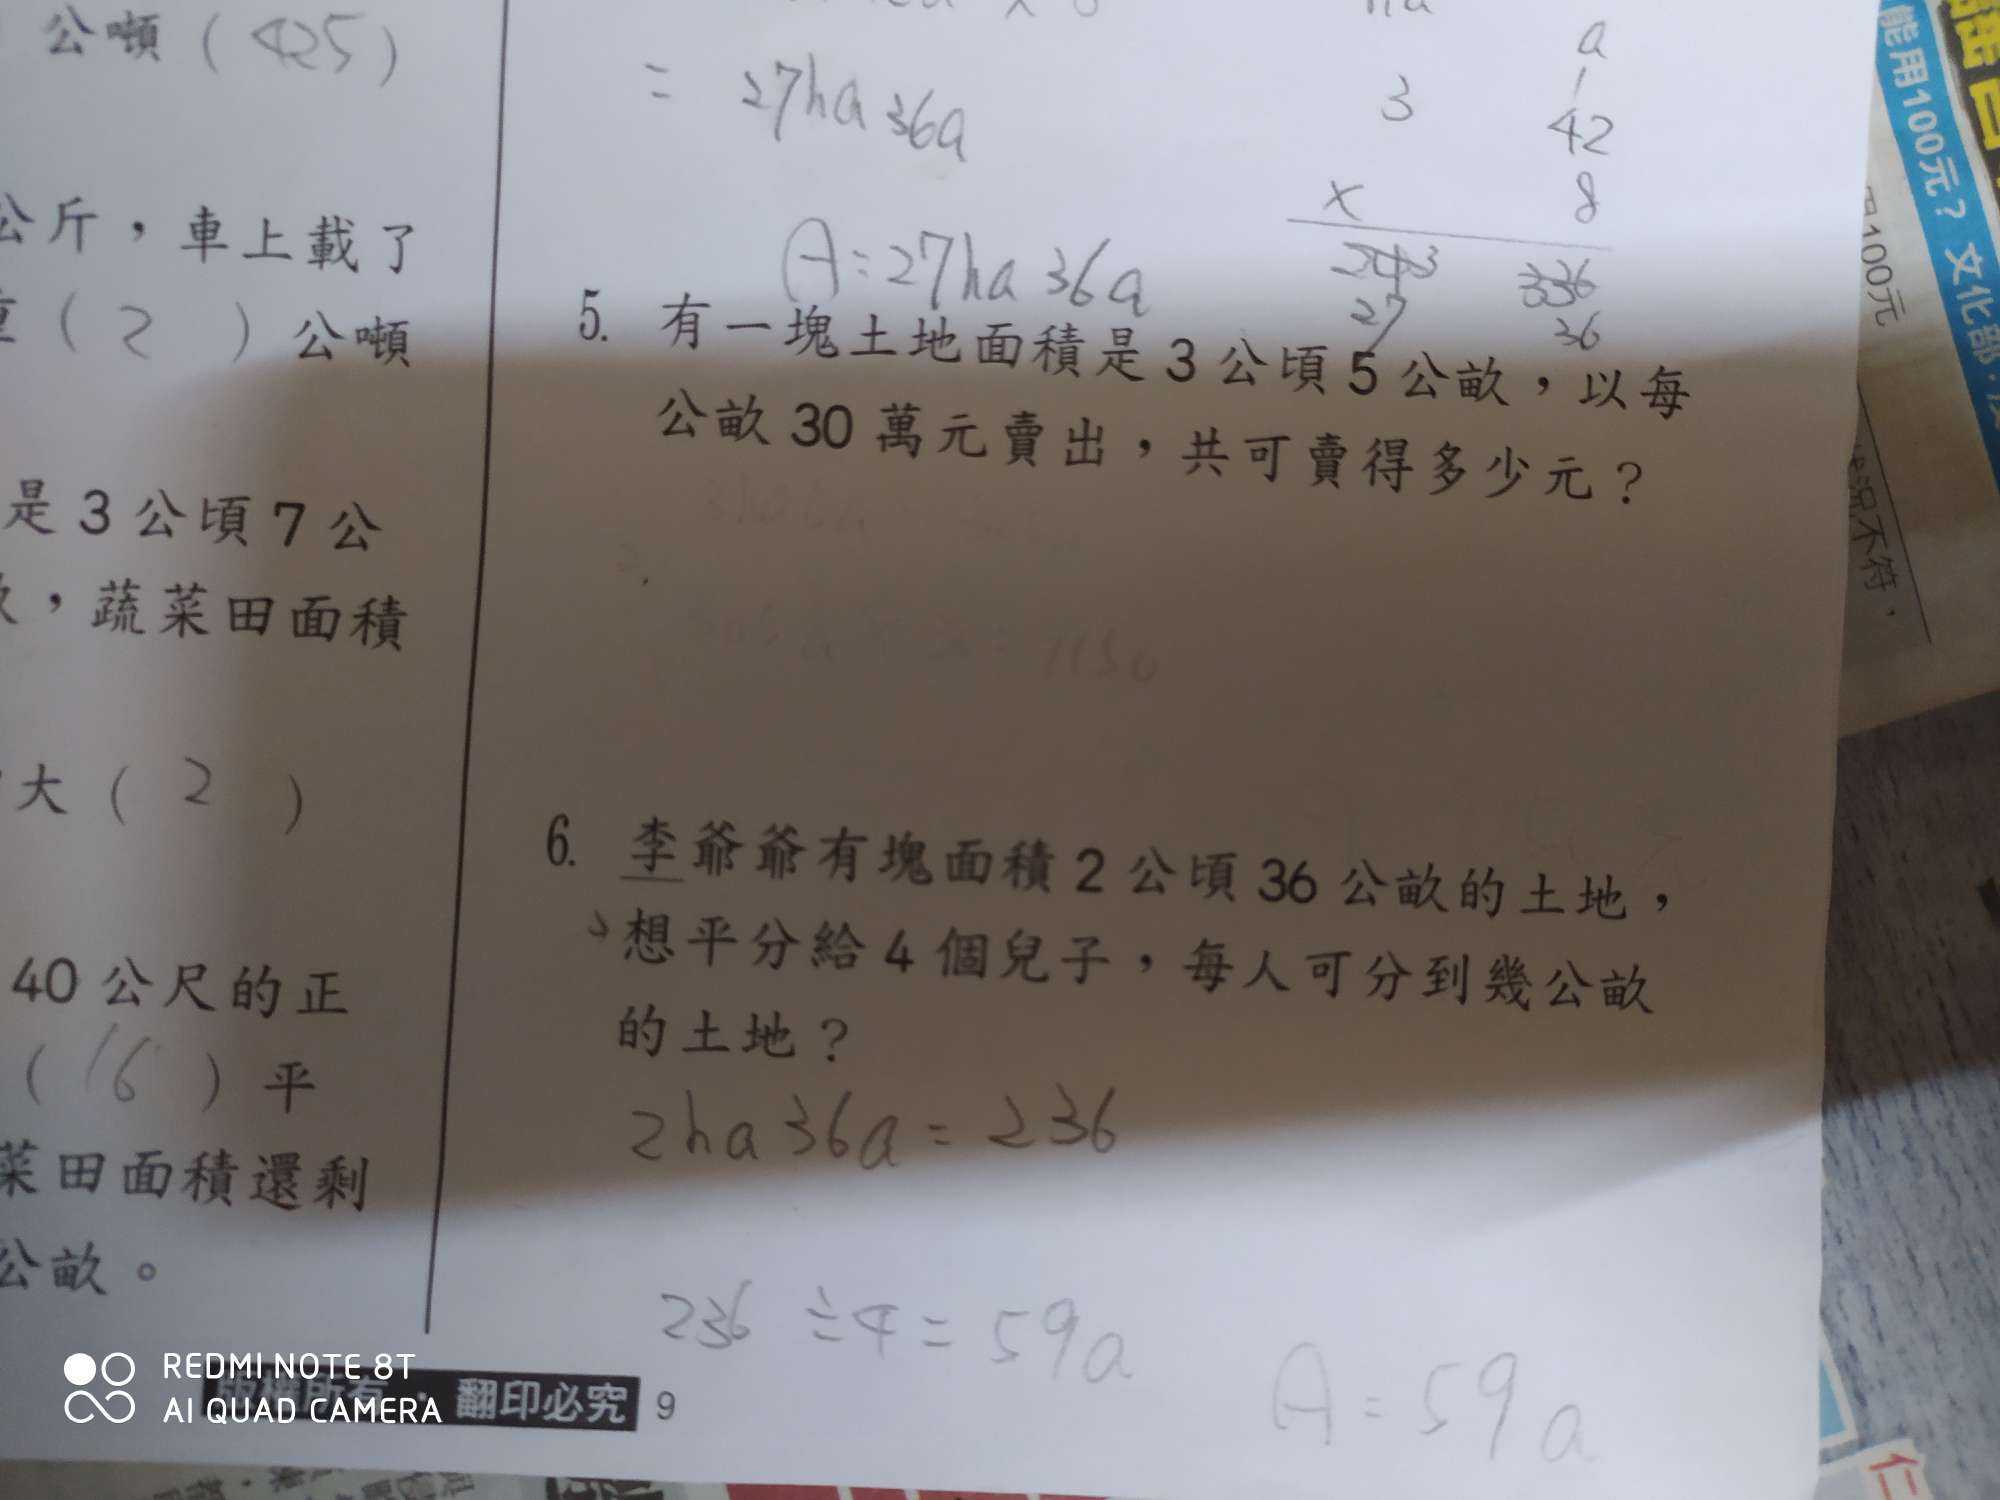 公噸（425）
公斤，車上載了
（2）公噸
是3公頃7公
，蔬菜田面積
大（2）
40公尺的正
（16）平
菜田面積還剩
公畝。
= 27ha 36a
A=27ha 36a
a
1
3 42
× 8
336
27 36
5. 有一塊土地面積是3公頃5公畝，以每
公畝30萬元賣出，共可賣得多少元？
6. 李爺爺有塊面積2公頃36公畝的土地，
想平分給4個兒子，每人可分到幾公畝
的土地？
2ha36a=236
236÷4=59a
A=59a
版權所有·翻印必究 9
REDMI NOTE 8T
AI QUAD CAMERA
能用100元？文化部
100元
況不符，
仁